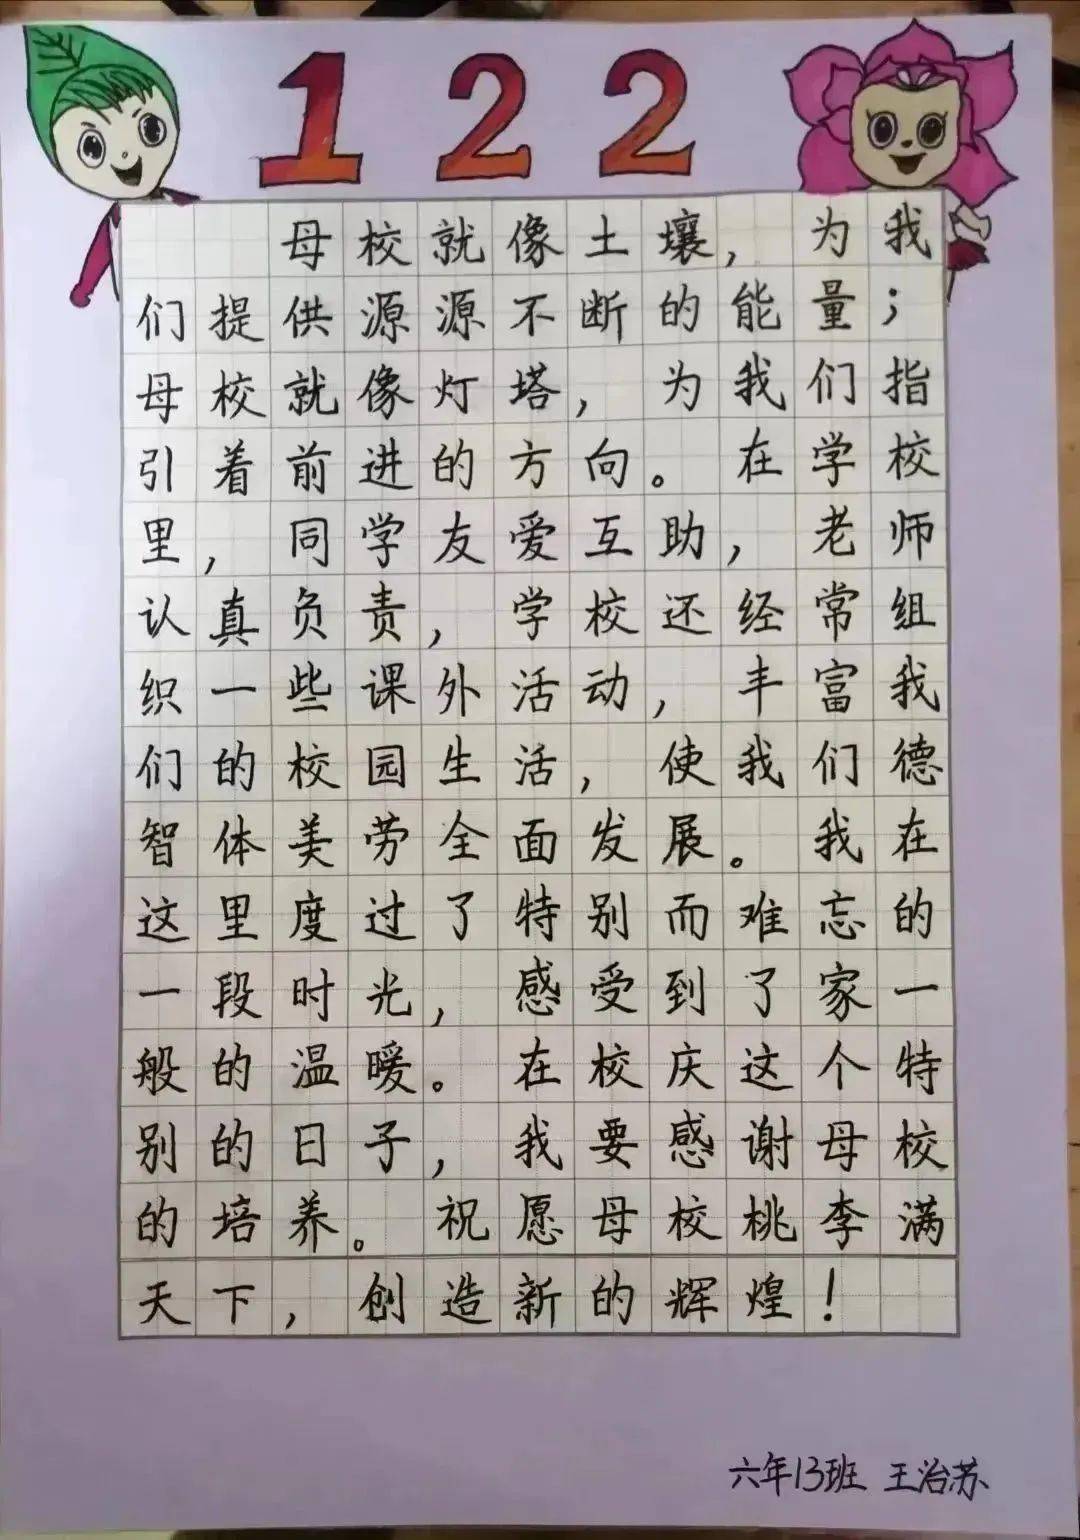 122
母校就像土壤，为我
们提供源源不断的能量；
母校就像灯塔，为我们指
引着前进的方向。在学校
里，同学友爱互助，老师
认真负责，学校还经常组
织一些课外活动，丰富我
们的校园生活，使我们德
智体美劳全面发展。我在
这里度过了特别而难忘的
一段时光，感受到了家一
般的温暖。在校庆这个特
别的日子，我要感谢母校
的培养。祝愿母校桃李满
天下，创造新的辉煌！
六年13班 王治苏